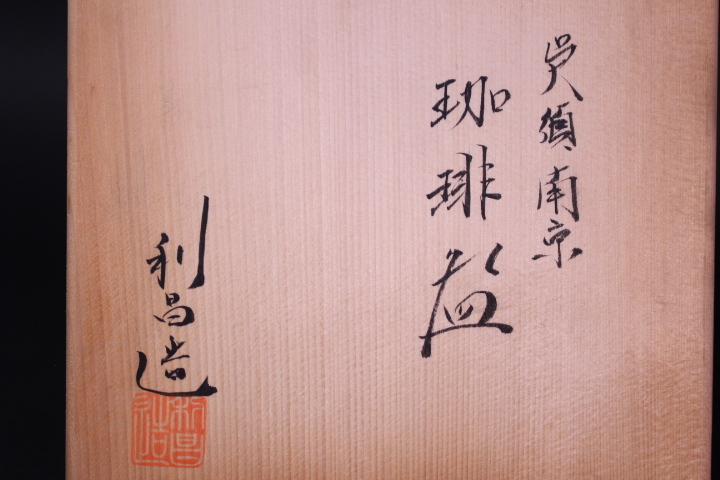 呉須南京
珈琲盌
利昌造
利昌造